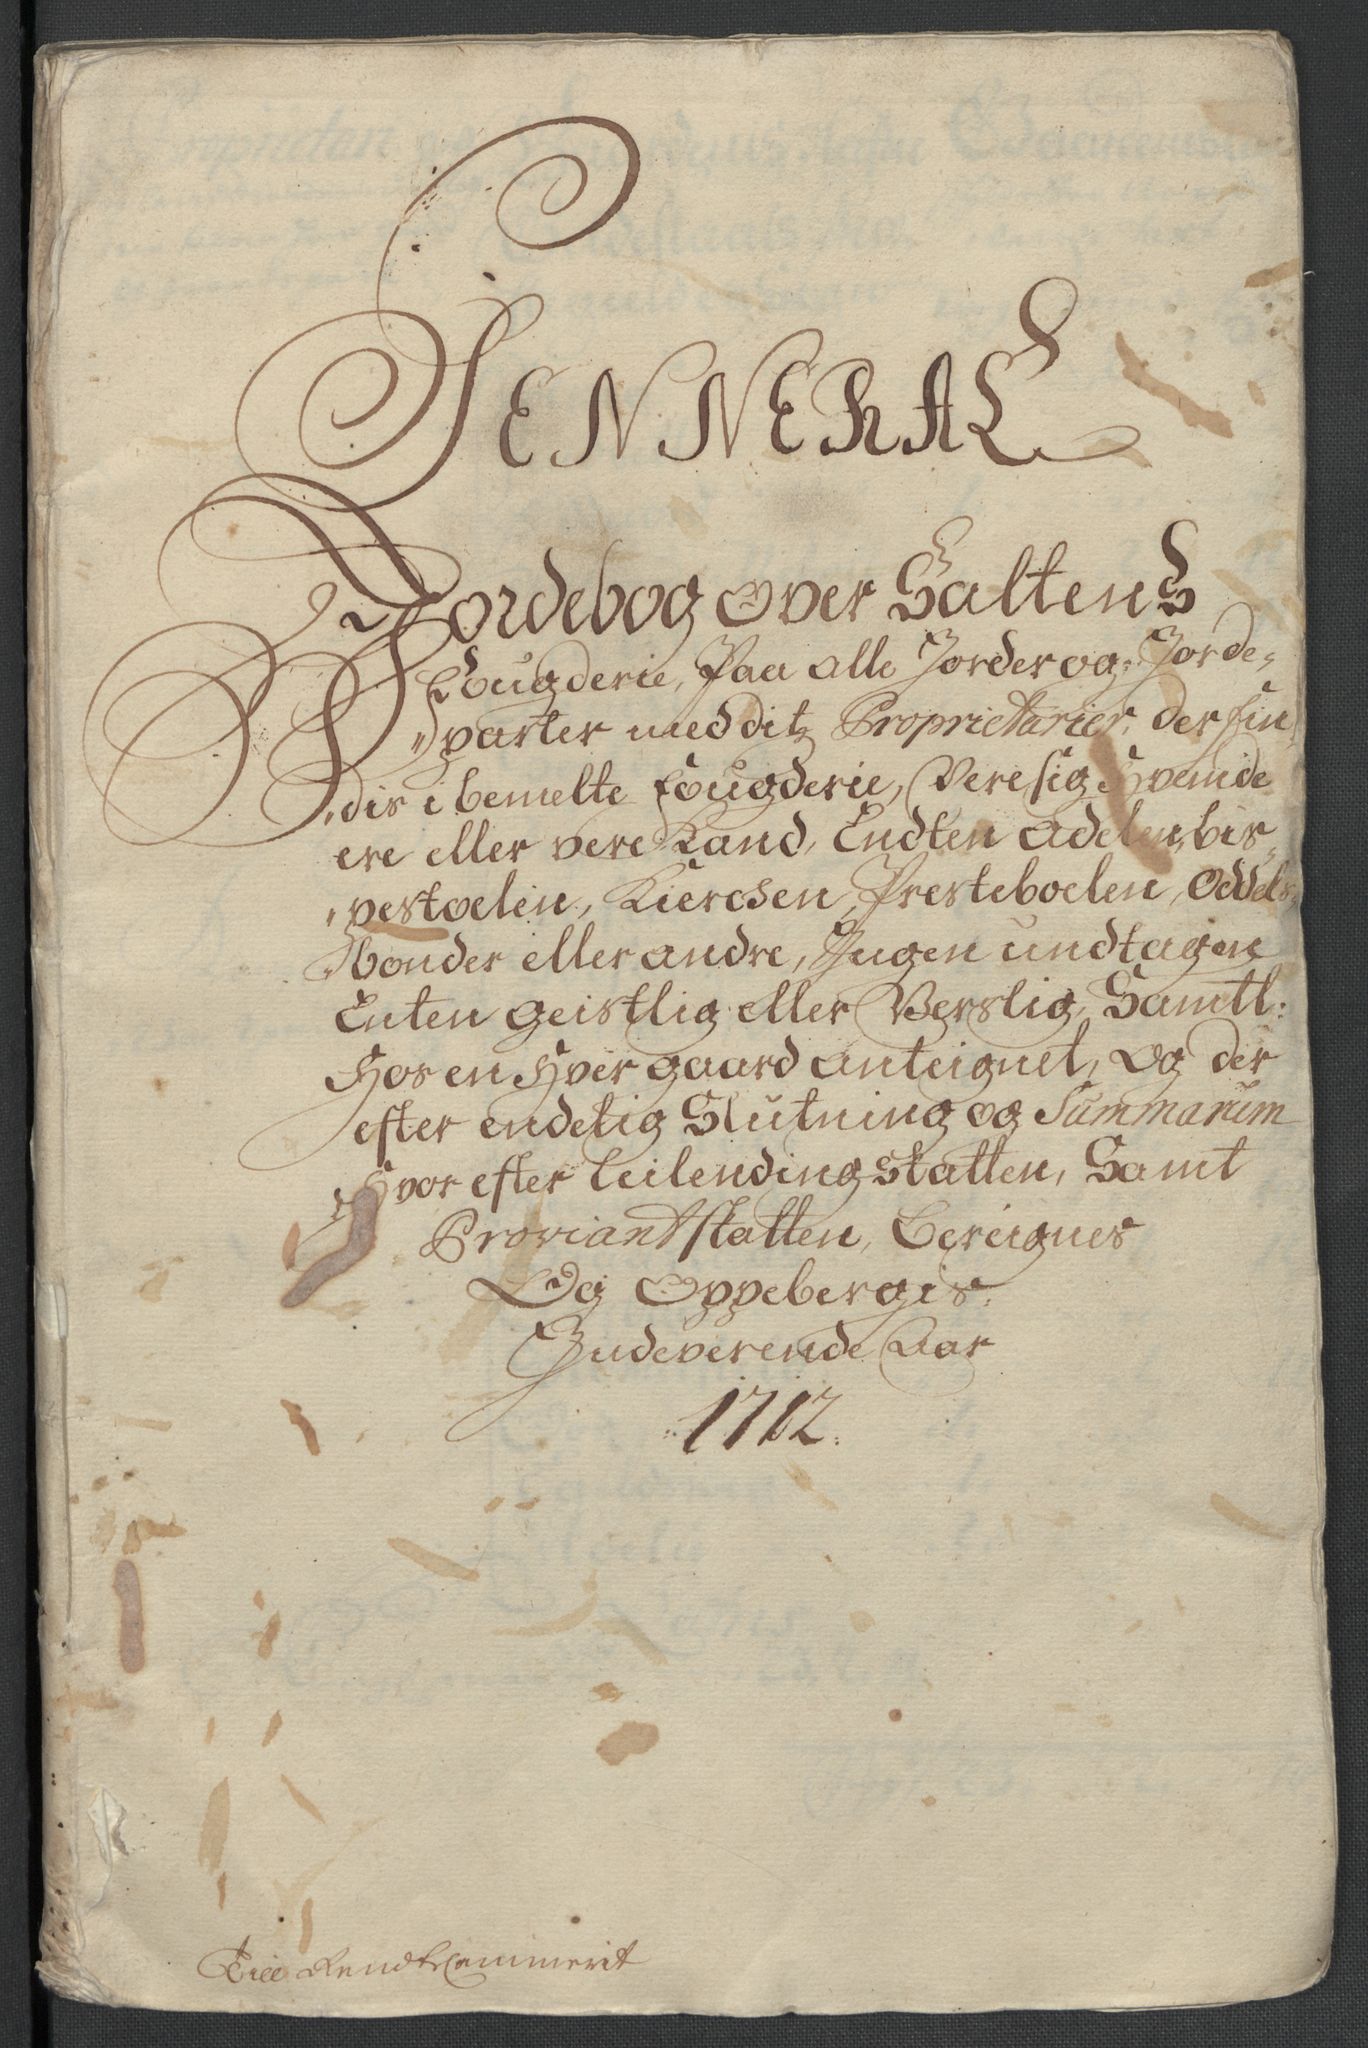 JENNERAL
Jordebog over Saltens
Fougderie, Paa alle Jorder og Jorde-
parter med diß Proprietarier, der fin-
dis i bemelte Fougderie, Vere sig Hvem de
ere eller vere Kand, Endten adelen, bis-
pestoelen, Kierchen, Presteboelen, Oddels
bonder eller andre, Ingen undtagen
Enten geistlig eller Verslig, Samtl:
Hos en Hver gaard anteignet, Og der
efter endelig Slutning og Summarum
Hvor efter leilending skatten, Samt
Proviantskatten, Bereignes
Og Oppebergis
Indeverende Aar
1712.
Till Rendte Cammerit